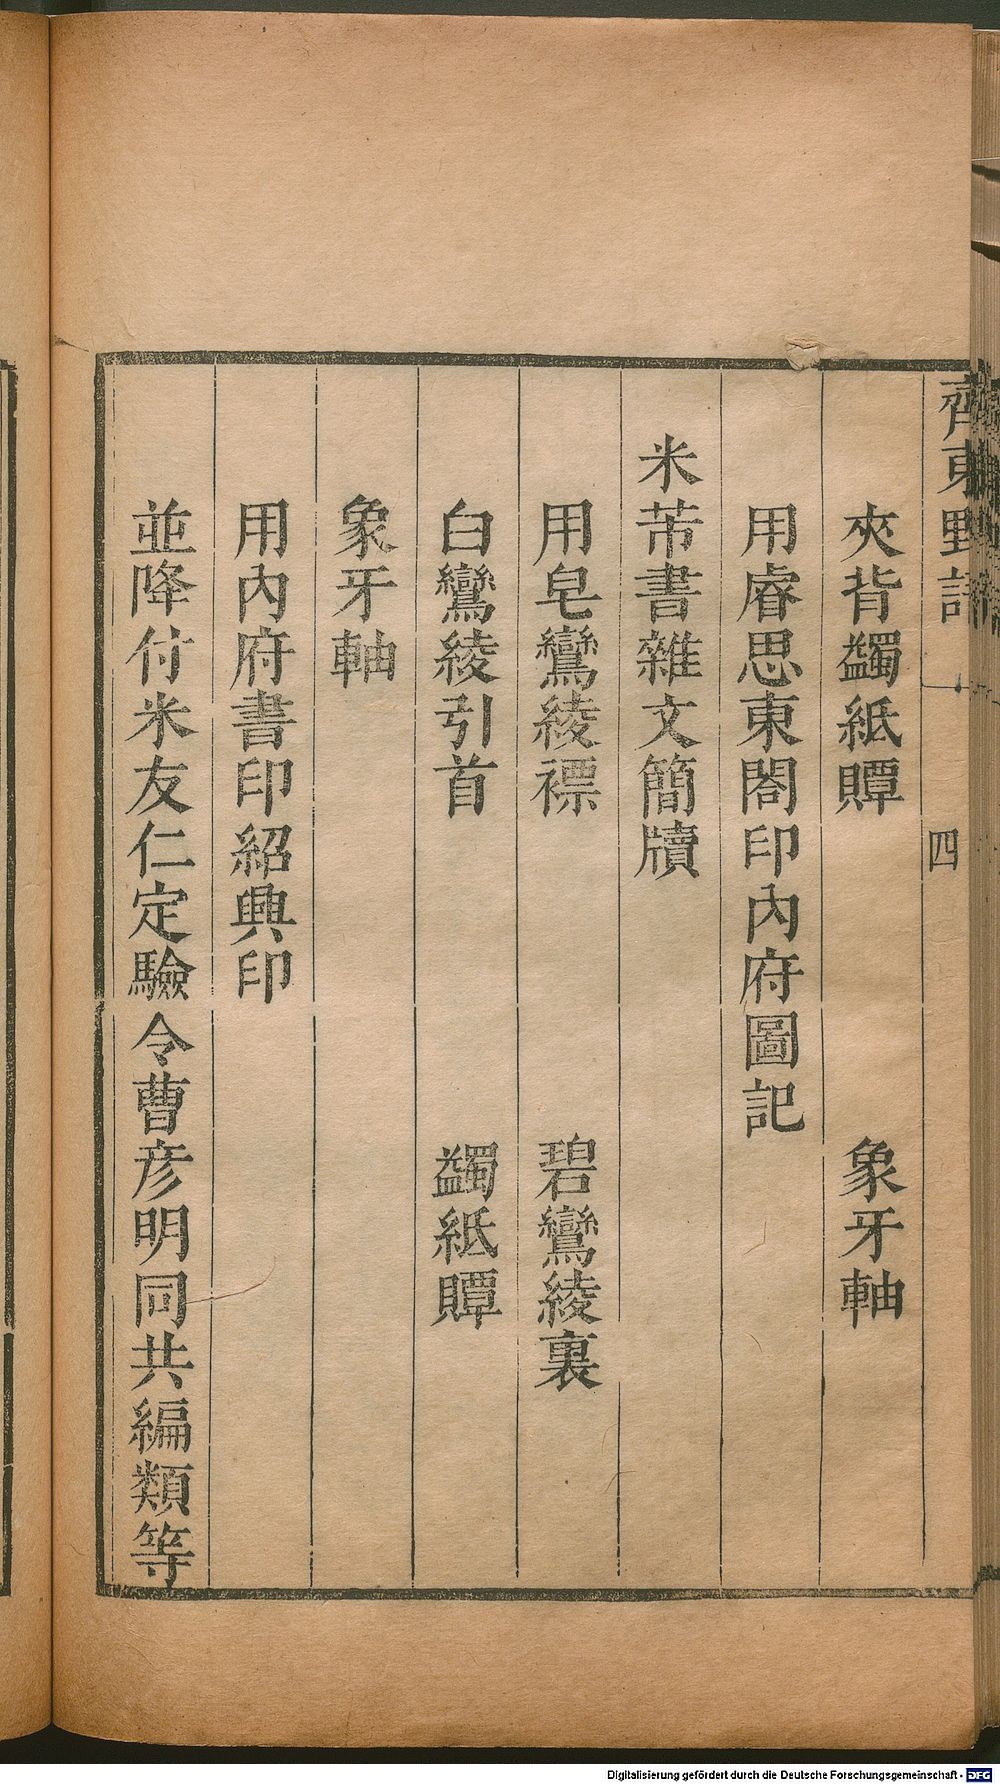 齊東野語
四
夾背蠲紙贉　象牙軸
用睿思東閣印內府圖記
米芾書雜文簡牘
用皂鸞綾褾　碧鸞綾裏
白鸞綾引首　蠲紙贉
象牙軸
用內府書印紹興印
並降付米友仁定驗令曹彥明同共編類等
Digitalisierung gefördert durch die Deutsche Forschungsgemeinschaft - DFG